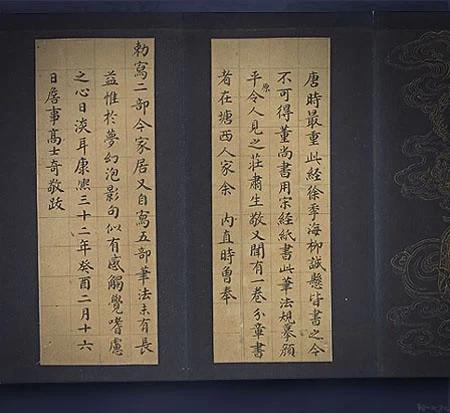 唐時最重此經徐季海柳誠懸皆書之今
不可得董尚書用宋經紙書此筆法規摹顏
平原令人見之莊肅生敬又聞有一卷分章書
者在塘西人家余 內直時曾奉
勅寫二部今家居又自寫五部筆法未有長
益惟於夢幻泡影句似有感觸覺嗜慾
之心日淡耳康熙三十二年癸酉二月十六
日詹事高士奇敬跋